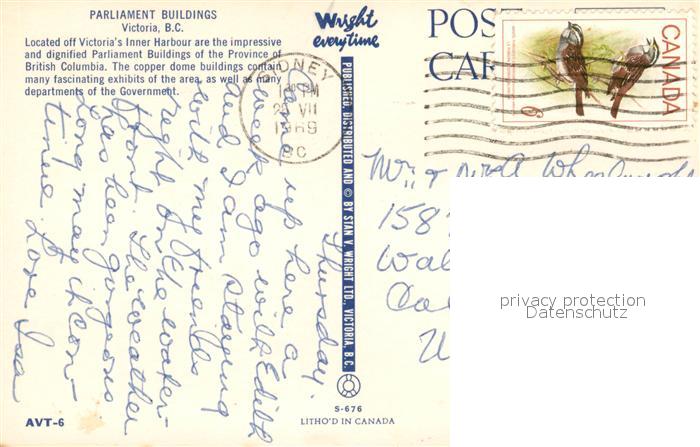 PARLIAMENT BUILDINGS
Victoria, B.C.
Located off Victoria's Inner Harbour are the impressive
and dignified Parliament Buildings of the Province of
British Columbia. The copper dome buildings contain
many fascinating exhibits of the area, as well as many
departments of the Government.
Wright
everytime
POST
CAR
CANADA
6
SIDNEY
PM
VII
1969
BC
PUBLISHED, DISTRIBUTED AND © BY STAN V. WRIGHT LTD., VICTORIA, B.C.
Thursday.
Came up here a
week ago with Edith
and I am staying
with my friends
right on the water-
front. The weather
has been gorgeous
Long may it con-
tinue. Love
Mr. & Mrs. A
158
Wal
Cal
U
privacy protection
Datenschutz
AVT-6
S-676
LITHO'D IN CANADA